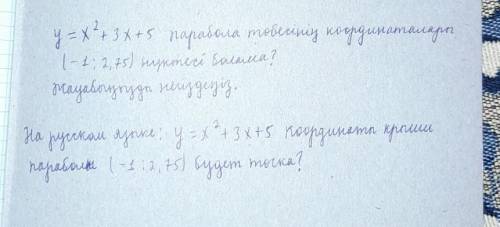 y = x² + 3x + 5 парабола төбесінің координаталары
(-1; 2,75) нүктесі болама?
жауабыңызды негіздеңіз.
На русском языке: y = x² + 3x + 5 координаты крыши
параболы (-1; 2,75) будет тоска?